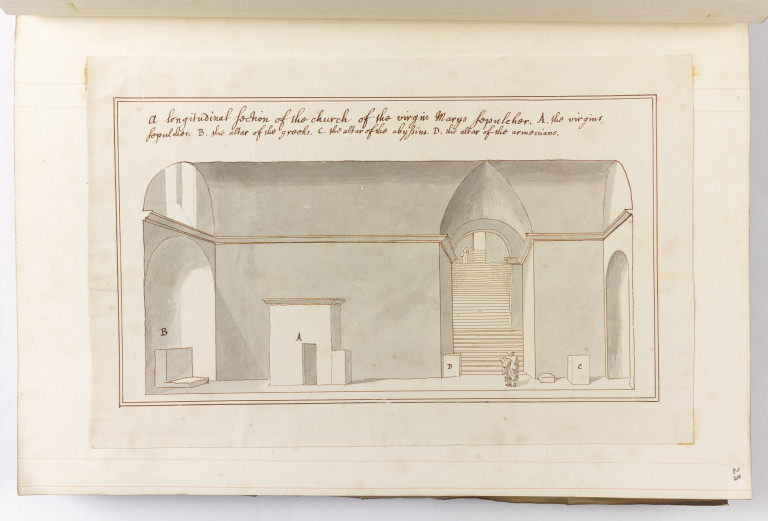 a longitudinal section of the church of the virgin Marys sepulcher. A. the virgins
sepulcher. B. the altar of the greeks. C. the altar of the abyssins. D. the altar of the armenians.
B
A
D
C